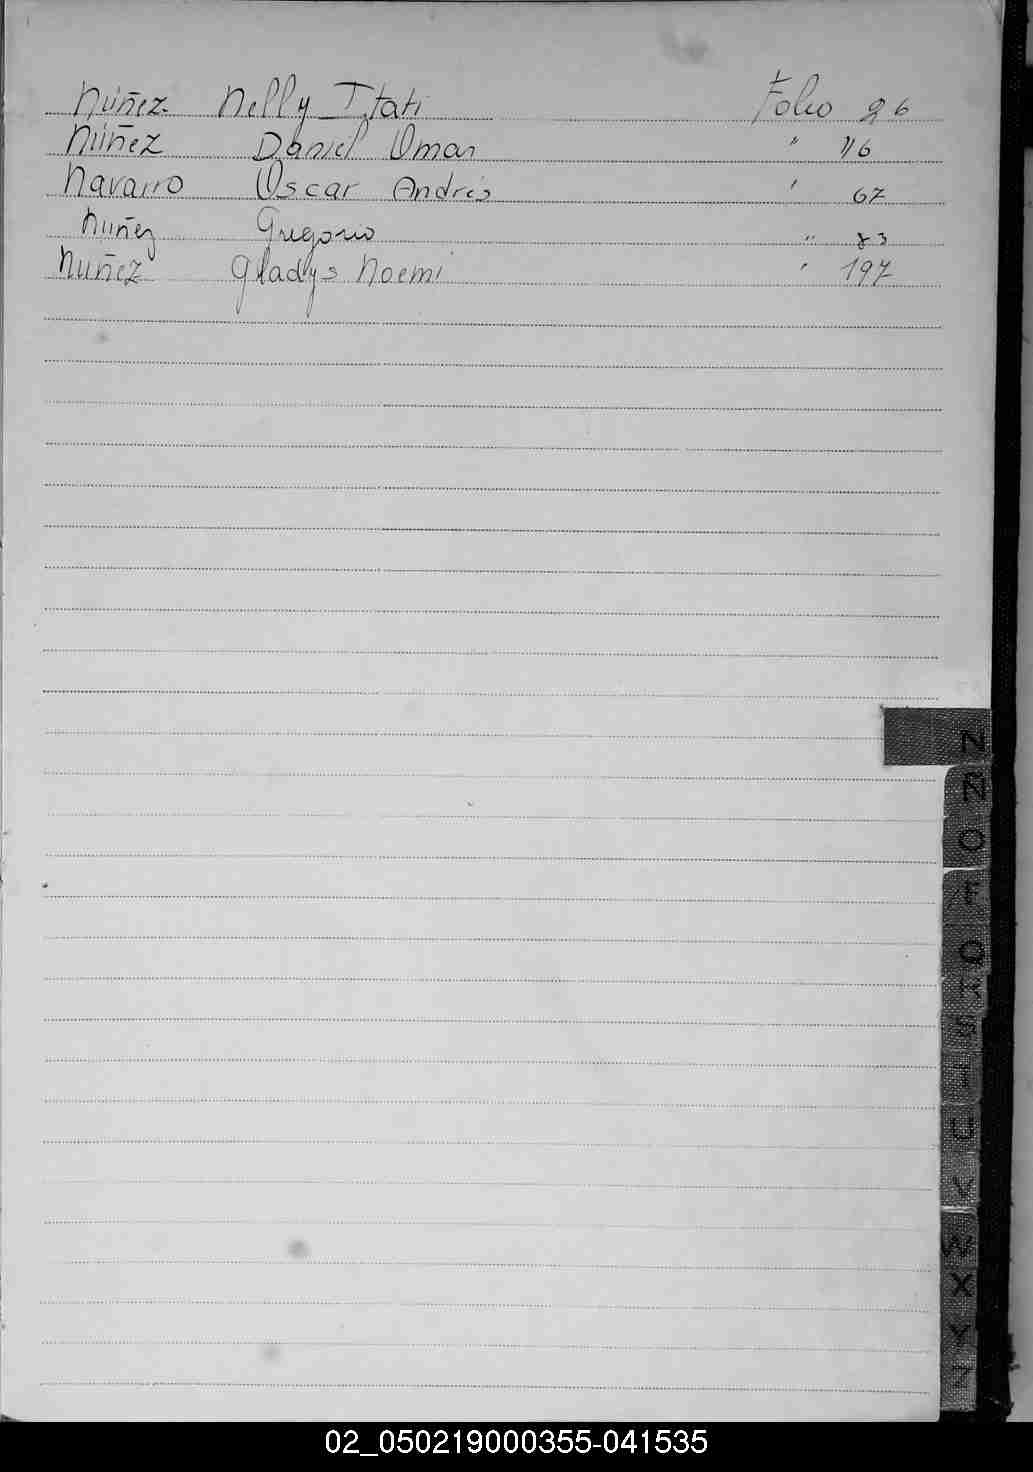 Núñez Nelly Itati Folio 26
Núñez Daniel Omar " 46
Navarro Oscar Andrés " 67
Nuñez Gregorio " 83
Nuñez Gladys Noemi " 197
N
Ñ
O
P
Q
R
S
T
U
V
W
X
Y
Z
02_050219000355-041535